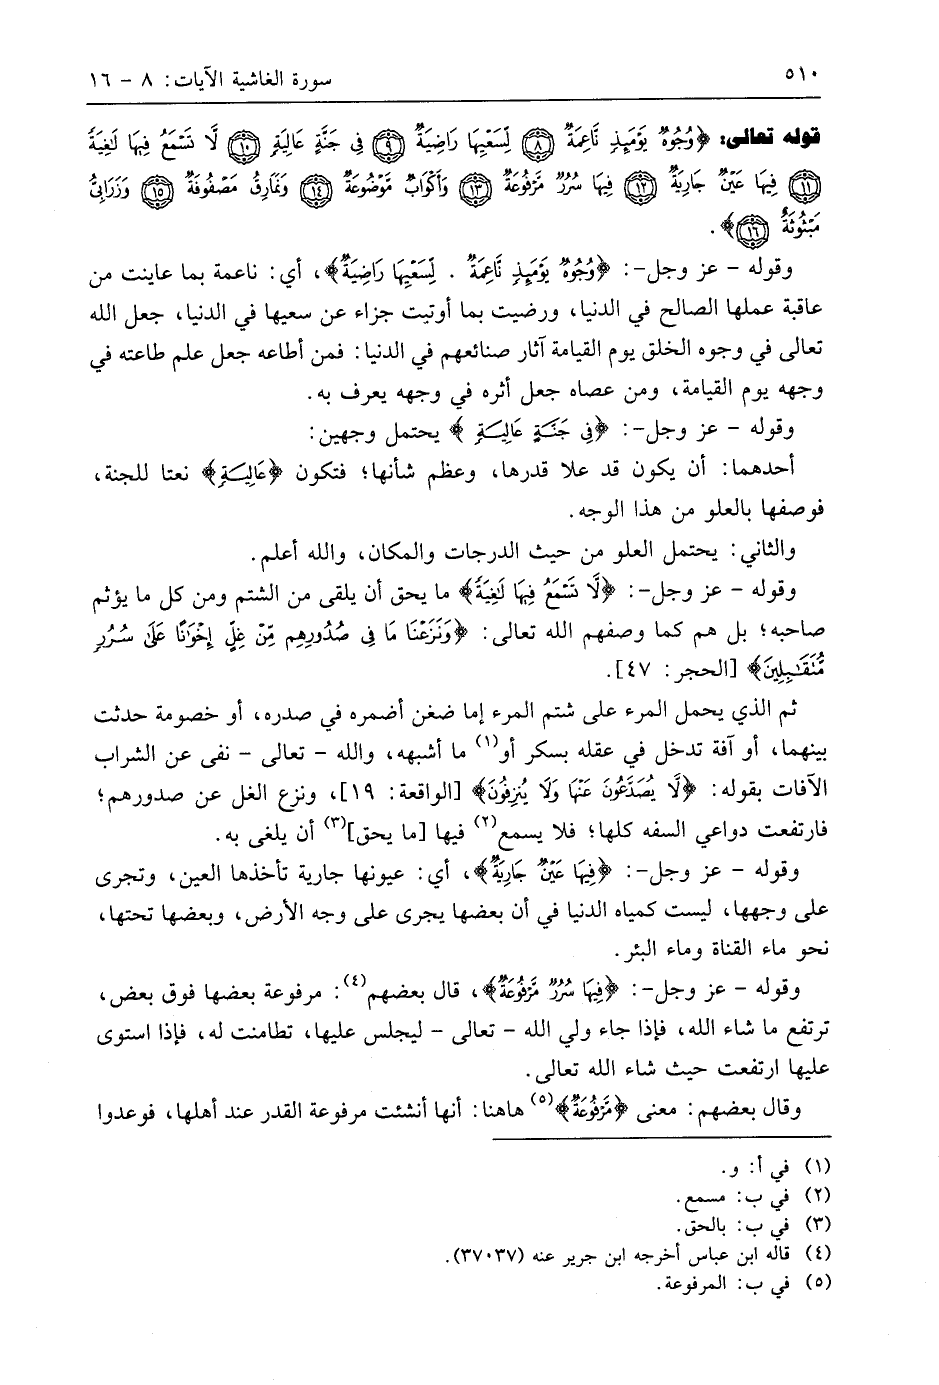 ٥١٠
سورة الغاشية الآيات: ٨ - ١٦
قوله تعالى: ﴿وُجُوهٌ يَوْمَئِذٍ نَّاعِمَةٌ ﴿٨﴾ لِّسَعْيِهَا رَاضِيَةٌ ﴿٩﴾ فِي جَنَّةٍ عَالِيَةٍ ﴿١٠﴾ لَّا تَسْمَعُ فِيهَا لَٰغِيَةً
﴿١١﴾ فِيهَا عَيْنٌ جَارِيَةٌ ﴿١٢﴾ فِيهَا سُرُرٌ مَّرْفُوعَةٌ ﴿١٣﴾ وَأَكْوَابٌ مَّوْضُوعَةٌ ﴿١٤﴾ وَنَمَارِقُ مَصْفُوفَةٌ ﴿١٥﴾ وَزَرَابِيُّ
مَبْثُوثَةٌ ﴿١٦﴾﴾.
وقوله - عز وجل-: ﴿وُجُوهٌ يَوْمَئِذٍ نَّاعِمَةٌ . لِّسَعْيِهَا رَاضِيَةٌ﴾، أي: ناعمة بما عاينت من
عاقبة عملها الصالح في الدنيا، ورضيت بما أوتيت جزاء عن سعيها في الدنيا، جعل الله
تعالى في وجوه الخلق يوم القيامة آثار صنائعهم في الدنيا: فمن أطاعه جعل علم طاعته في
وجهه يوم القيامة، ومن عصاه جعل أثره في وجهه يعرف به.
وقوله - عز وجل-: ﴿فِي جَنَّةٍ عَالِيَةٍ﴾ يحتمل وجهين:
أحدهما: أن يكون قد علا قدرها، وعظم شأنها؛ فتكون ﴿عَالِيَةٍ﴾ نعتا للجنة،
فوصفها بالعلو من هذا الوجه.
والثاني: يحتمل العلو من حيث الدرجات والمكان، والله أعلم.
وقوله - عز وجل-: ﴿لَّا تَسْمَعُ فِيهَا لَٰغِيَةً﴾ ما يحق أن يلقى من الشتم ومن كل ما يؤثم
صاحبه؛ بل هم كما وصفهم الله تعالى: ﴿وَنَزَعْنَا مَا فِي صُدُورِهِم مِّنْ غِلٍّ إِخْوَٰنًا عَلَىٰ سُرُرٍ
مُّتَقَٰبِلِينَ﴾ [الحجر: ٤٧].
ثم الذي يحمل المرء على شتم المرء إما ضغن أضمره في صدره، أو خصومة حدثت
بينهما، أو آفة تدخل في عقله بسكر أو(١) ما أشبهه، والله - تعالى - نفى عن الشراب
الآفات بقوله: ﴿لَّا يُصَدَّعُونَ عَنْهَا وَلَا يُنزِفُونَ﴾ [الواقعة: ١٩]، ونزع الغل عن صدورهم؛
فارتفعت دواعي السفه كلها؛ فلا يسمع(٢) فيها [ما يحق](٣) أن يلغى به.
وقوله - عز وجل-: ﴿فِيهَا عَيْنٌ جَارِيَةٌ﴾، أي: عيونها جارية تأخذها العين، وتجرى
على وجهها، ليست كمياه الدنيا في أن بعضها يجرى على وجه الأرض، وبعضها تحتها،
نحو ماء القناة وماء البئر.
وقوله - عز وجل-: ﴿فِيهَا سُرُرٌ مَّرْفُوعَةٌ﴾، قال بعضهم(٤): مرفوعة بعضها فوق بعض،
ترتفع ما شاء الله، فإذا جاء ولي الله - تعالى - ليجلس عليها، تطامنت له، فإذا استوى
عليها ارتفعت حيث شاء الله تعالى.
وقال بعضهم: معنى ﴿مَّرْفُوعَةٌ﴾(٥) هاهنا: أنها أنشئت مرفوعة القدر عند أهلها، فوعدوا
(١) في أ: و.
(٢) في ب: مسمع.
(٣) في ب: بالحق.
(٤) قاله ابن عباس أخرجه ابن جرير عنه (٣٧٠٣٧).
(٥) في ب: المرفوعة.